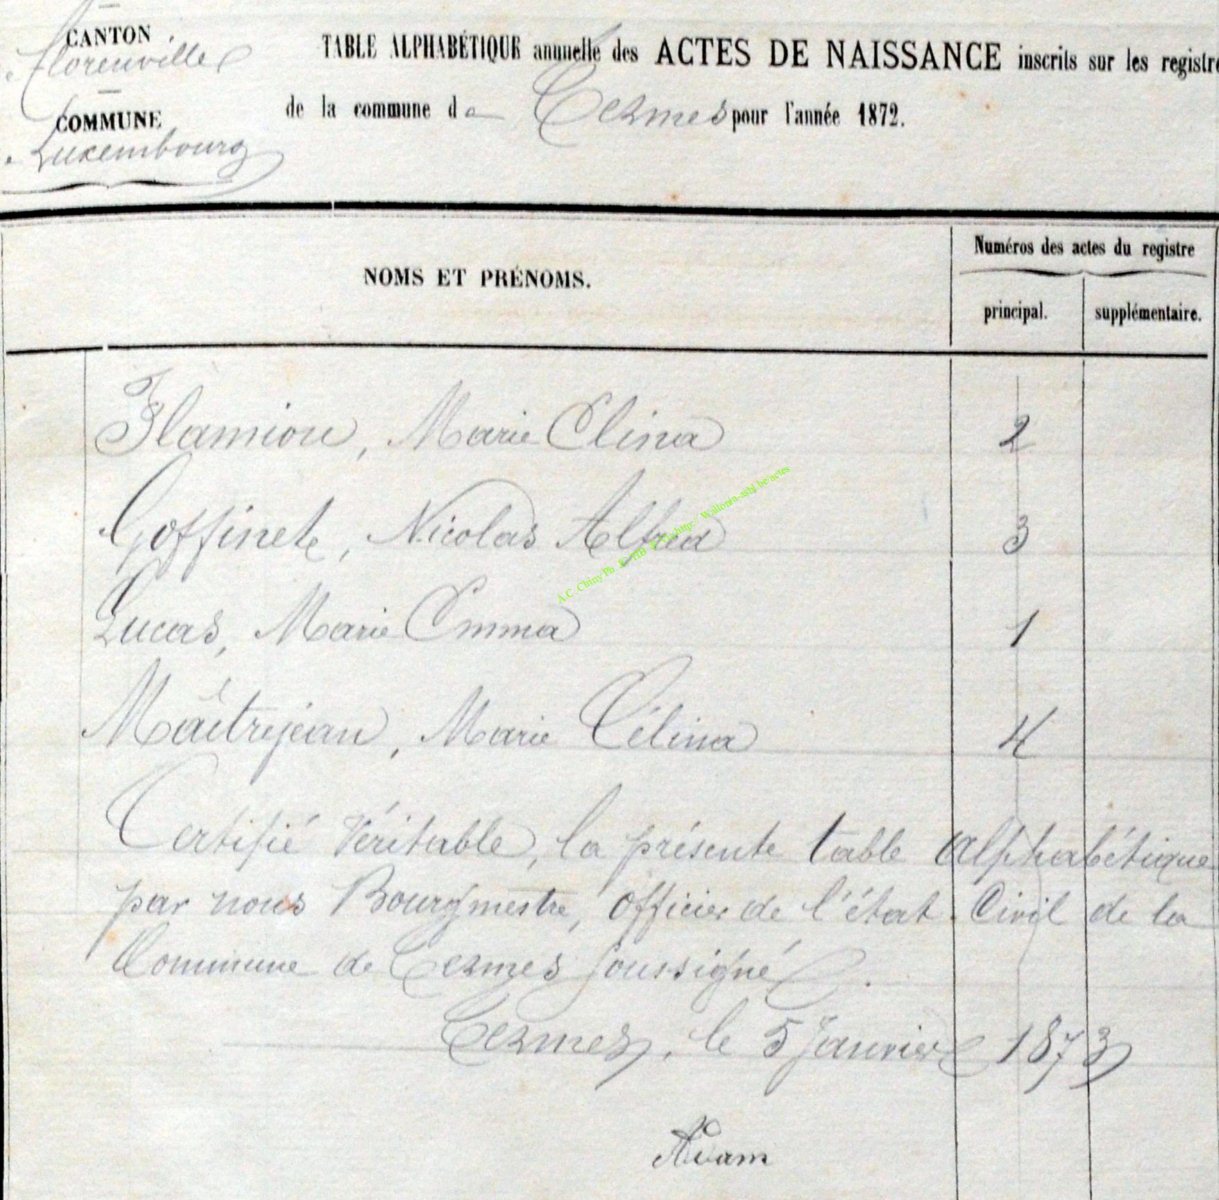 CANTON
Florenville
COMMUNE
Luxembourg
TABLE ALPHABÉTIQUE annuelle des ACTES DE NAISSANCE inscrits sur les registre
de la commune de Termes pour l'année 1872.
NOMS ET PRÉNOMS.
Numéros des actes du registre
principal. supplémentaire.
Flamion, Marie Elina 2
Goffinet, Nicolas Alfred 3
Lucas, Marie Emma 1
Maîtrejean, Marie Célina 4
Certifié véritable, la présente table alphabétique
par nous Bourgmestre, officier de l'état Civil de la
Commune de Termes soussigné.
Termes, le 5 Janvier 1873
Adam
A.C. Chiny Ph.